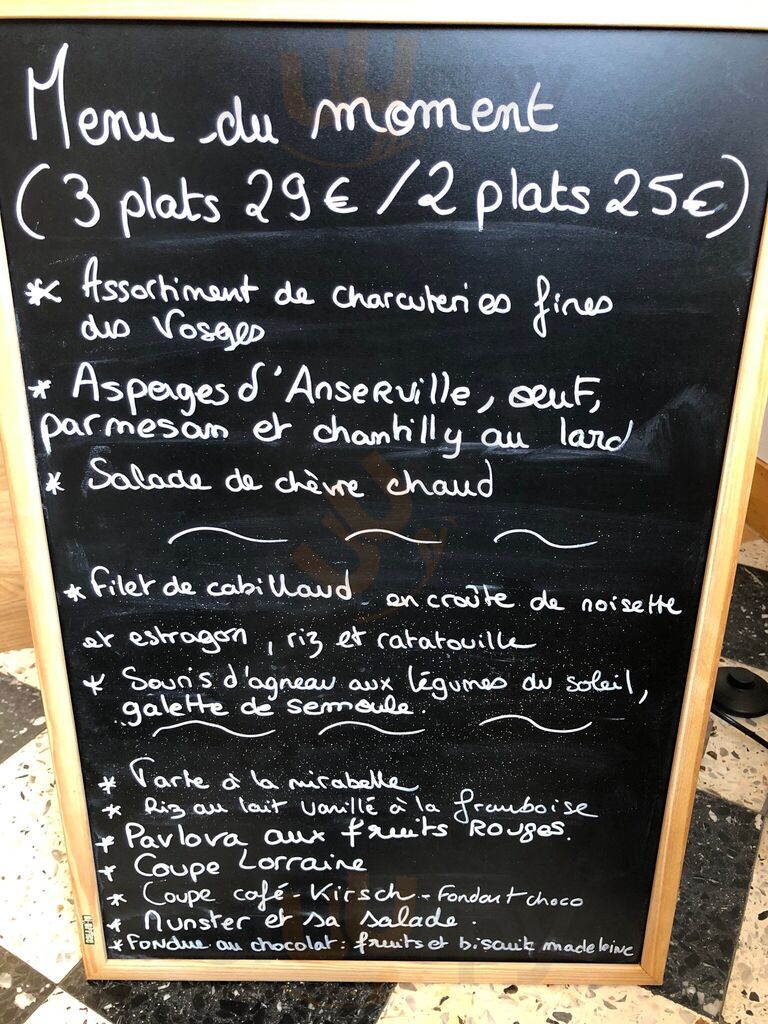 Menu du moment
(3 plats 29€ / 2 plats 25€)
* Assortiment de charcuteries fines
des Vosges
* Asperges d'Anserville, oeuf,
parmesan et chantilly au lard
* Salade de chèvre chaud
* Filet de cabillaud en croûte de noisette
et estragon, riz et ratatouille
* Souris d'agneau aux légumes du soleil,
galette de semoule.
* Tarte à la mirabelle
* Riz au lait vanillé à la framboise
* Pavlova aux fruits Rouges.
* Coupe Lorraine
* Coupe café - Kirsch - Fondant choco
* Munster et sa salade.
* Fondue au chocolat : fruits et biscuit madeleine